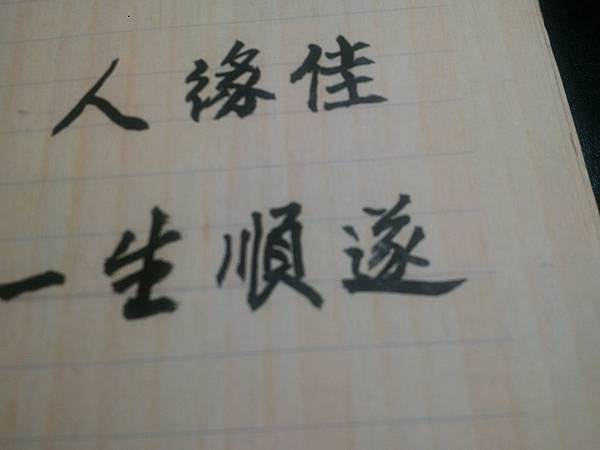 人緣佳
一生順遂